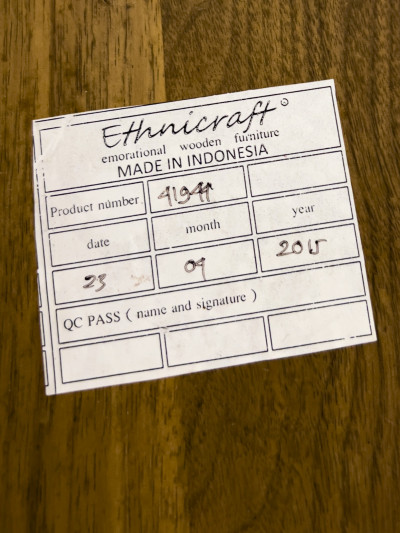 Ethnicraft
emorational wooden furniture
MADE IN INDONESIA
Product number 41944
date month year
23 09 2015
QC PASS ( name and signature )